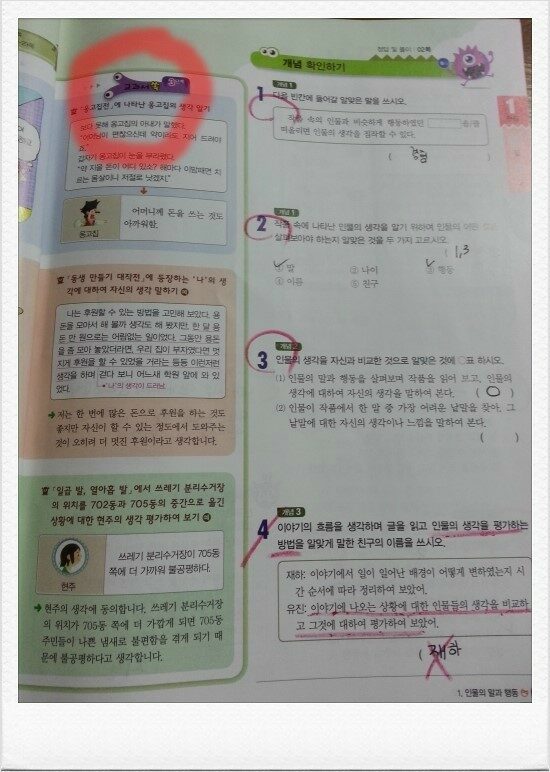 교과서
☎ '옹고집전'에 나타난 옹고집의 생각 알기
보다 못해 옹고집의 아내가 말했다.
"어머님이 편찮으신데 약이라도 지어 드려야
죠."
갑자기 옹고집이 눈을 부라렸다.
"약 지을 돈이 어디 있소? 해마다 이맘때면 치
르는 몸살이니 저절로 낫겠지."
옹고집
어머니께 돈을 쓰는 것도
아까워함.
'동생 만들기 대작전'에 등장하는 '나'의 생
각에 대하여 자신의 생각 말하기 예
나는 후원할 수 있는 방법을 고민해 보았다. 용
돈을 모아서 해 볼까 생각도 해 봤지만, 한 달 용
돈 만 원으로는 어림없는 일이었다. 그동안 용돈
을 좀 모아 놓았더라면, 우리 집이 부자였다면 멋
지게 후원을 할 수 있었을 거라는 등등 이런저런
생각을 하며 걷다 보니 어느새 학원 앞에 와 있
었다.
'나'의 생각이 드러남.
➔ 저는 한 번에 많은 돈으로 후원을 하는 것도
좋지만 자신이 할 수 있는 정도에서 도와주는
것이 오히려 더 멋진 후원이라고 생각합니다.
'일곱 발, 열아홉 발'에서 쓰레기 분리수거장
의 위치를 702동과 705동의 중간으로 옮긴
상황에 대한 현주의 생각 평가하여 보기 예
현주
쓰레기 분리수거장이 705동
쪽에 더 가까워 불공평하다.
➔ 현주의 생각에 동의합니다. 쓰레기 분리수거장
의 위치가 705동 쪽에 더 가깝게 되면 705동
주민들이 나쁜 냄새로 불편함을 겪게 되기 때
문에 불공평하다고 생각합니다.
정답 및 풀이 • 02쪽
개념 확인하기
1
개념 1
1 다음 빈칸에 들어갈 알맞은 말을 쓰시오.
작품 속의 인물과 비슷하게 행동하였던 을/를
떠올리면 인물의 생각을 짐작할 수 있다.
( 경험 )
개념 1
2 작품 속에 나타난 인물의 생각을 알기 위하여 인물의 어떤
살펴보아야 하는지 알맞은 것을 두 가지 고르시오.
( 1, 3
① 말 ② 나이 ③ 행동
④ 이름 ⑤ 친구
개념 2
3 인물의 생각을 자신과 비교한 것으로 알맞은 것에 ○표 하시오.
(1) 인물의 말과 행동을 살펴보며 작품을 읽어 보고, 인물의
생각에 대하여 자신의 생각을 말하여 본다. ( O )
(2) 인물이 작품에서 한 말 중 가장 어려운 낱말을 찾아, 그
낱말에 대한 자신의 생각이나 느낌을 말하여 본다.
( )
개념 3
4 이야기의 흐름을 생각하며 글을 읽고 인물의 생각을 평가하는
방법을 알맞게 말한 친구의 이름을 쓰시오.
재하: 이야기에서 일이 일어난 배경이 어떻게 변하였는지 시
간 순서에 따라 정리하여 보았어.
유진: 이야기에 나오는 상황에 대한 인물들의 생각을 비교하
고 그것에 대하여 평가하여 보았어.
( 재하
1. 인물의 말과 행동